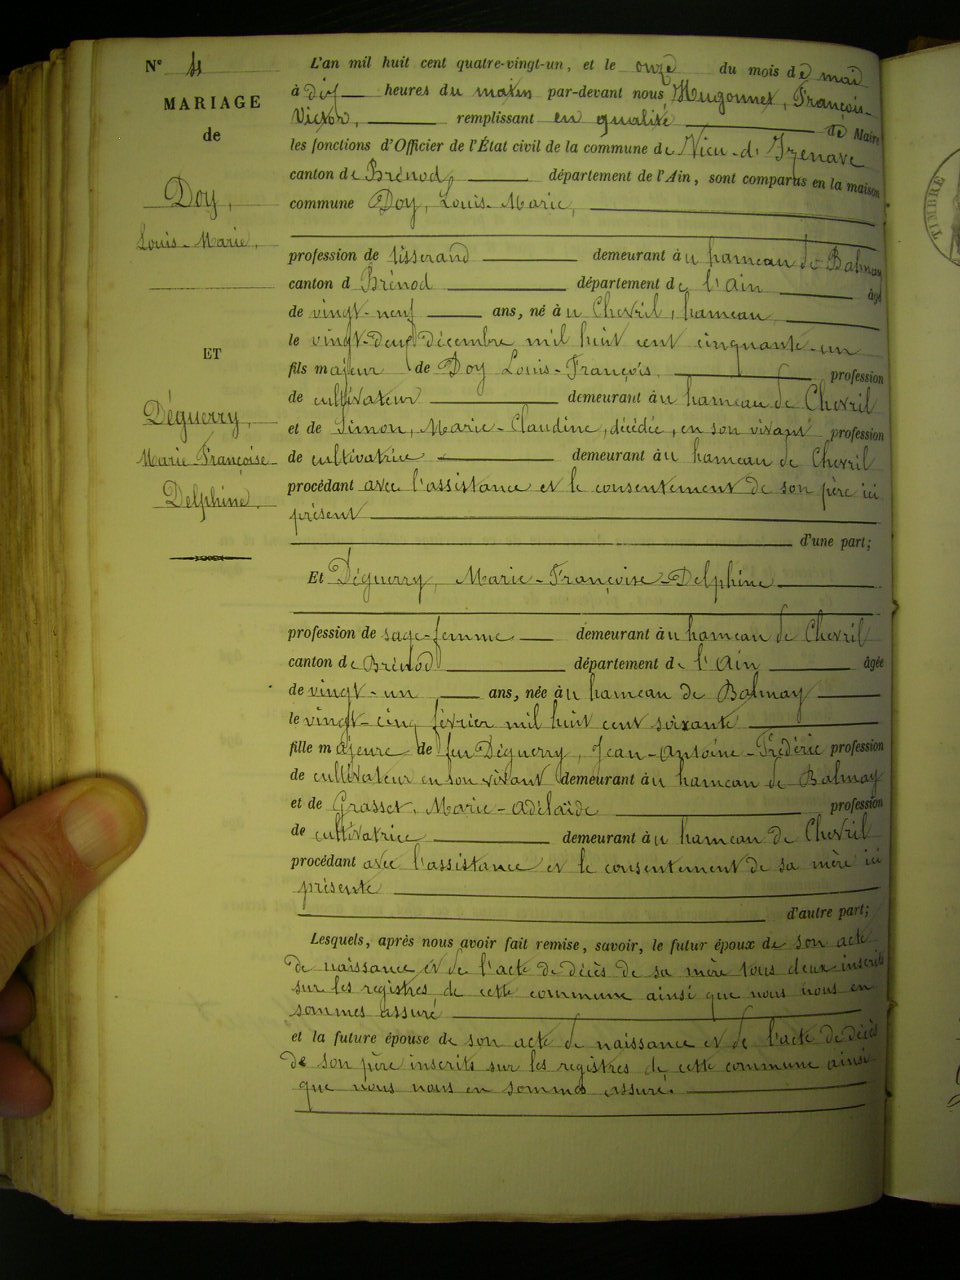 N° 4
MARIAGE
de
Doy,
Louis-Marie,
ET
Déguerry,
Marie Françoise
Delphine,
L'an mil huit cent quatre-vingt-un, et le onze du mois de mai
à dix heures du matin par-devant nous, Hugonnet, François-
Victor, remplissant en qualité de Maire
les fonctions d'Officier de l'État civil de la commune de Vieu-d'Izenave
canton de Brénod, département de l'Ain, sont comparus en la maison
commune Doy, Louis-Marie,
profession de tisserand demeurant àu hameau de Balmay
canton d Brénod département de l'Ain âgé
de vingt-neuf ans, né àu Chevril, hameau
le vingt-deux décembre mil huit cent cinquante-un
fils majeur de Doy Louis-François, profession
de cultivateur demeurant àu hameau de Chevril
et de Simon, Marie-Claudine, décédée, en son vivant profession
de cultivatrice demeurant àu hameau de Chevril
procédant avec l'assistance et le consentement de son père ici
présent
d'une part;
Et Déguerry, Marie-Françoise-Delphine
profession de sage-femme demeurant àu hameau de Chevril
canton de Brénod département de l'Ain âgée
de vingt-un ans, née àu hameau de Balmay
le vingt-cinq février mil huit cent soixante
fille majeure de feu Déguerry, Jean-Antoine-Frédéric profession
de cultivateur en son vivant demeurant àu hameau de Balmay
et de Grasset, Marie-Adélaïde profession
de cultivatrice demeurant àu hameau de Chevril
procédant avec l'assistance et le consentement de sa mère ici
présente
d'autre part;
Lesquels, après nous avoir fait remise, savoir, le futur époux de son acte
de naissance et de l'acte de décès de sa mère tous deux inscrits
sur les registres de cette commune ainsi que nous nous en
sommes assuré
et la future épouse de son acte de naissance et de l'acte de décès
de son père inscrits sur les registres de cette commune ainsi
que nous nous en sommes assuré.
TIMBRE